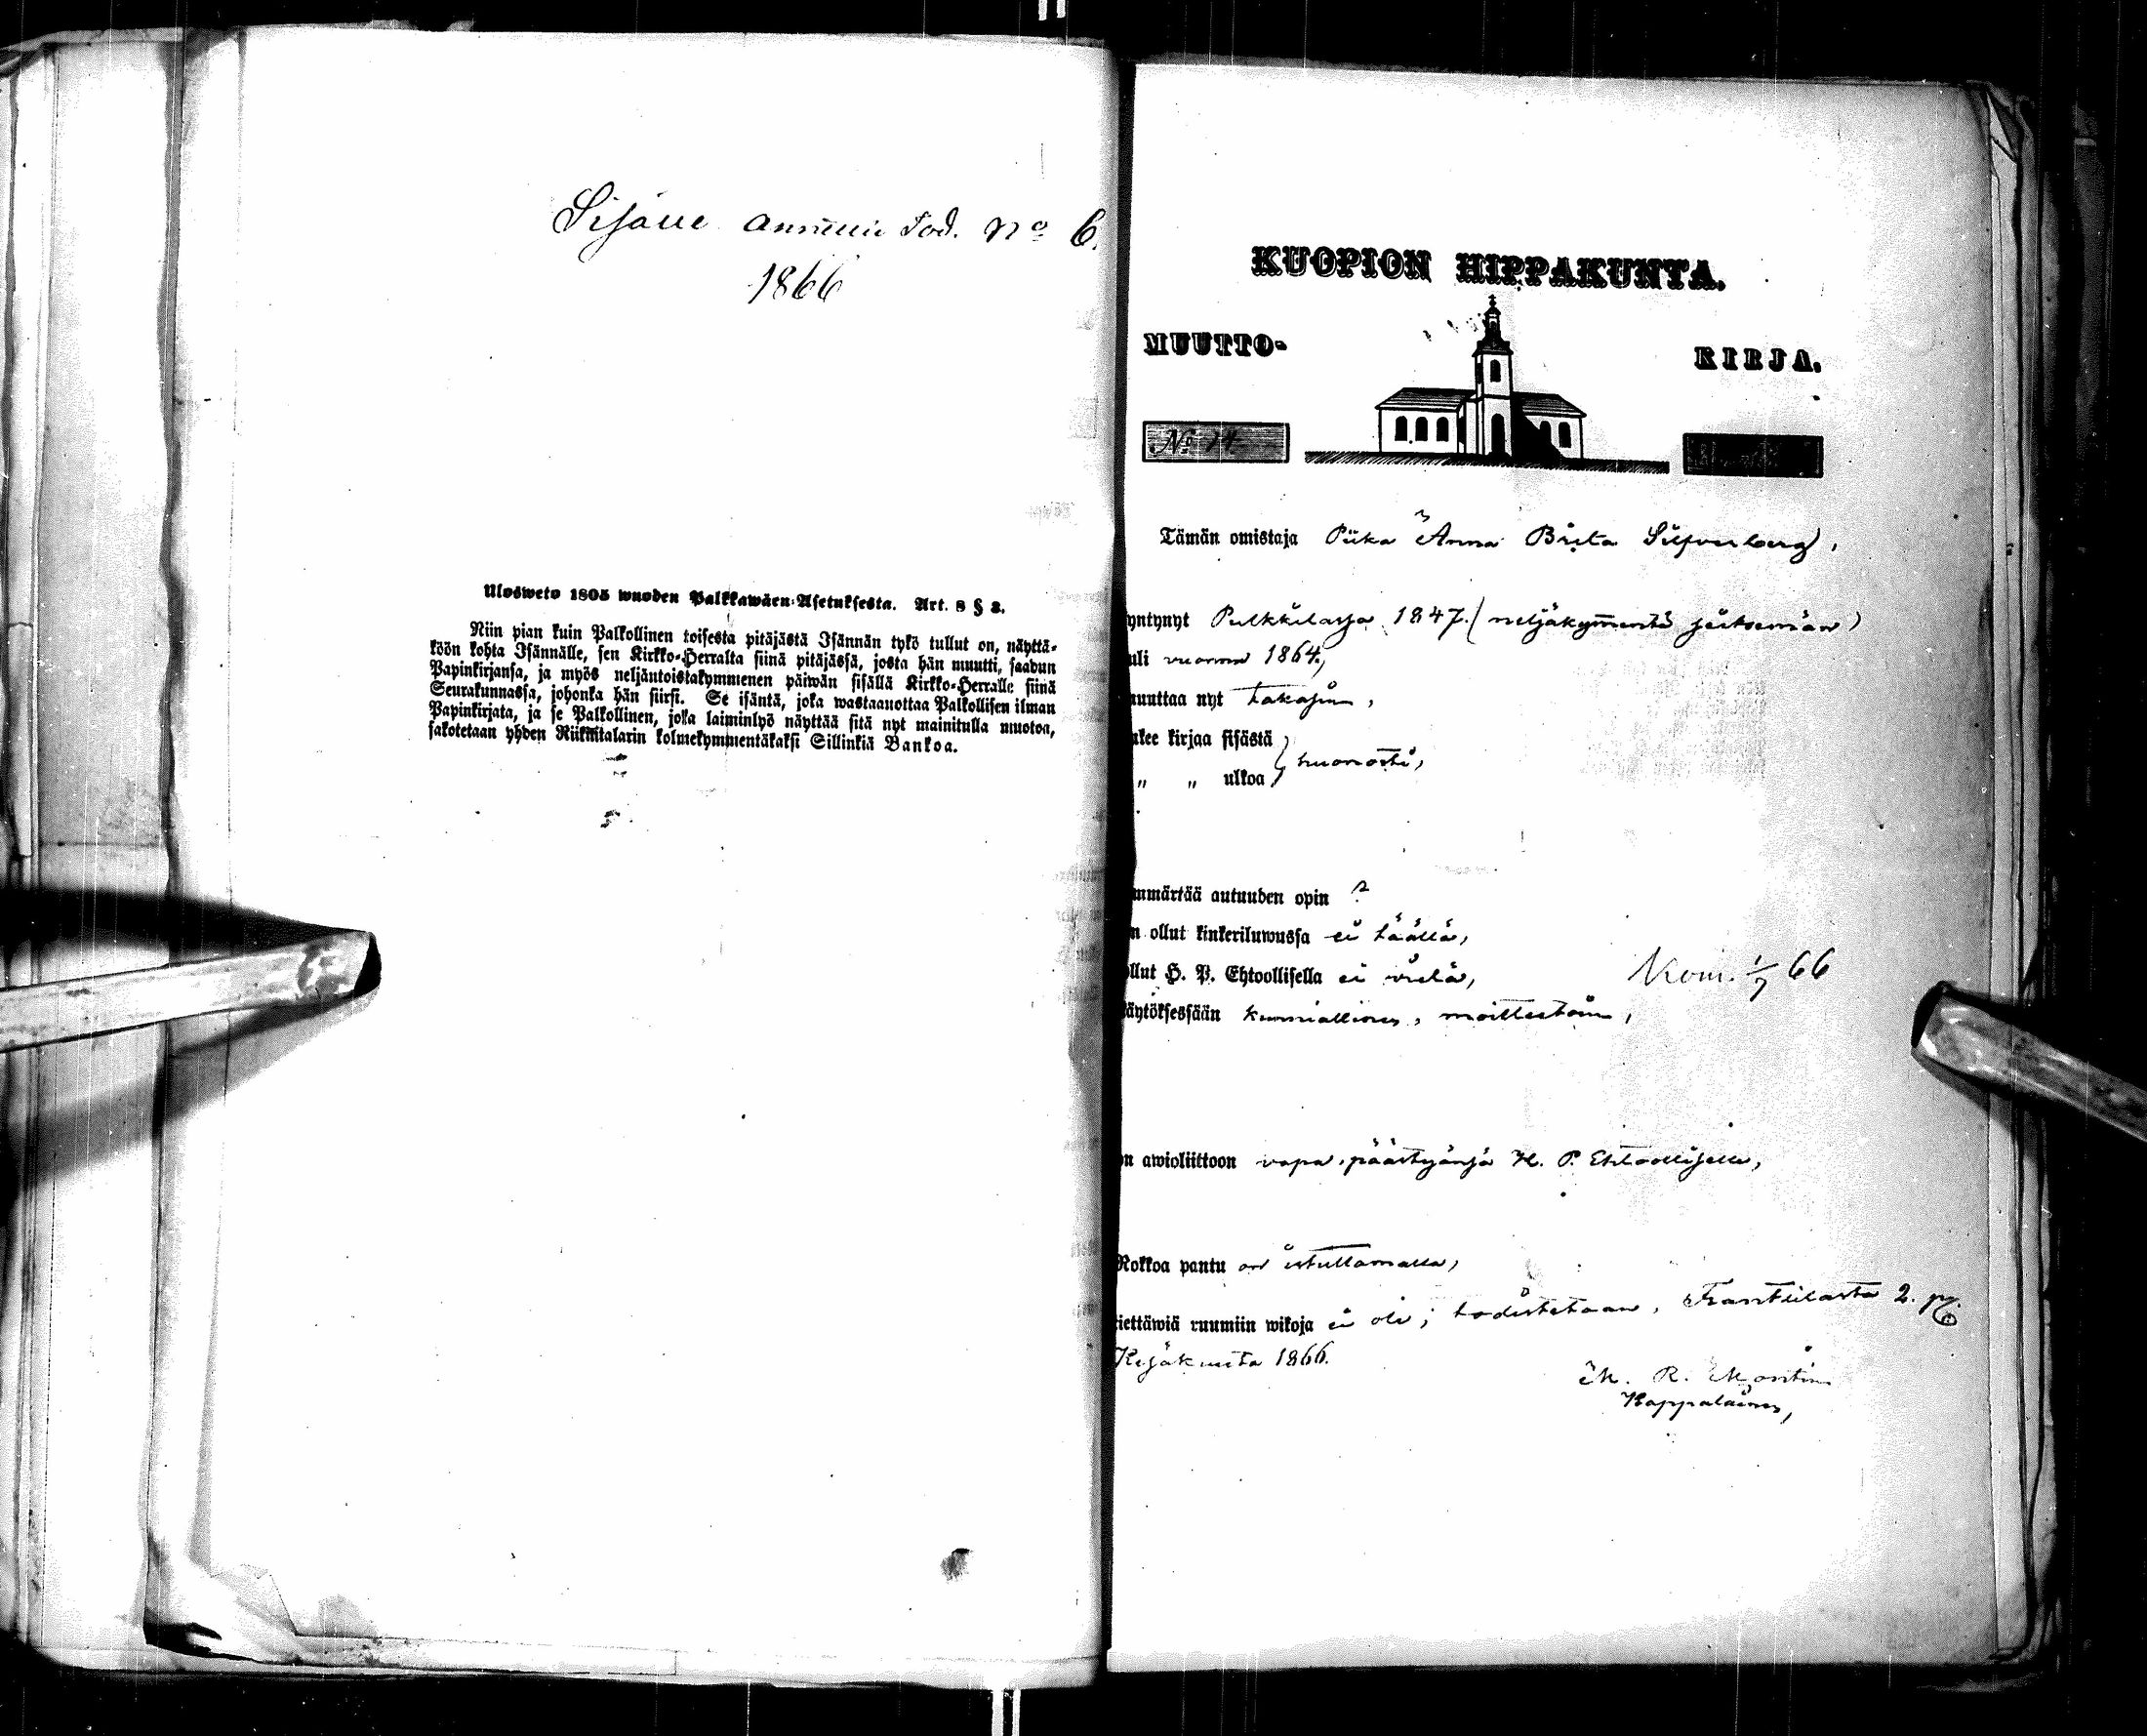 Sisäue annettu tod. No 6.
1866
Ulosweto 1805 wuoden Palkkawäen-Asetuksesta. Art. 8 § 3.
Niin pian kuin Palkollinen toisesta pitäjästä Isännän tykö tullut on, näyttä-
köön kohta Isännälle, sen Kirkko-Herralta siinä pitäjässä, josta hän muutti, saadun
Papinkirjansa, ja myös neljäntoistakymmenen päiwän sisällä Kirkko-Herralle siinä
Seurakunnassa, johonka hän siirsi. Se isäntä, joka wastaanottaa Palkollisen ilman
Papinkirjata, ja se Palkollinen, joka laiminlyö näyttää sitä nyt mainitulla muotoa,
sakotetaan yhden Riikintalarin kolmekymmentäkaksi Sillinkiä Bankoa.
KUOPION HIPPAKUNTA.
MUUTTO-
KIRJA.
No 14
Tämän omistaja Piika Anna Brita Silfverberg,
yntynyt Pulkkilassa 1847. (neljäkymmentä seitsemän)
uli vuonna 1864,
nuuttaa nyt takasin,
ukee kirjaa sisästä
" " ulkoa } huonosti,
mmärtää autuuden opin ?
n ollut kinkeriluwussa ei täällä,
ollut H. P. Ehtoollisella ei vielä,
Kom. 1/7 66
äytöksessään kunniallinen, moitteetoin,
on awioliittoon vapa, päästyänsä H. P. Ehtoolliselle,
Rokkoa pantu on istuttamalla,
tiettäwiä ruumiin wikoja ei ole; todistetaan, Frantsilasta 2. p.
Kesäkuuta 1866.
M. R. Montin
Kappalainen,